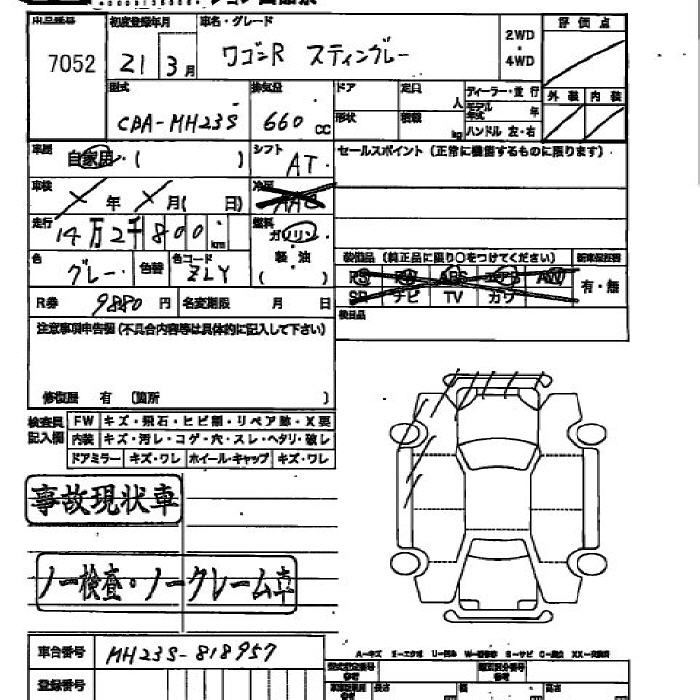 出品番号 初度登録年月 車名・グレード 2WD・4WD 評価点
7052 21 3月 ワゴンR スティングレー
型式 排気量 ドア 定員 人 ディーラー・並行 外装 内装
CBA-MH23S 660 cc 形状 積載 kg モデル年式 年
ハンドル 左・右
車歴 自家用・( ) シフト AT セールスポイント(正常に機能するものに限ります)
車検 年 月( 日) 冷房 AAC
走行 14万2千800km 燃料 ガソリン・軽油( )
色 グレー 色替 色コード ZLY
装備品(純正品に限り○をつけてください) 新車保証書
PS PW ABS エアB AW 有・無
SR ナビ TV カワ
R券 9880円 名変期限 月 日
後日品
注意事項申告欄(不具合内容等は具体的に記入して下さい)
修復歴 有(箇所 )
検査員記入欄 FW キズ・飛石・ヒビ割・リペア跡・X要
内装 キズ・汚レ・コゲ・穴・スレ・ヘタリ・破レ
ドアミラー キズ・ワレ ホイール・キャップ キズ・ワレ
事故現状車
ノー検査・ノークレーム車
車台番号 MH23S-818957
登録番号
A-キズ E-エクボ U-凹み W-補修跡 S-サビ C-腐食 XX-交換済
型式指定番号 類別区分番号
長さ 幅 高さ